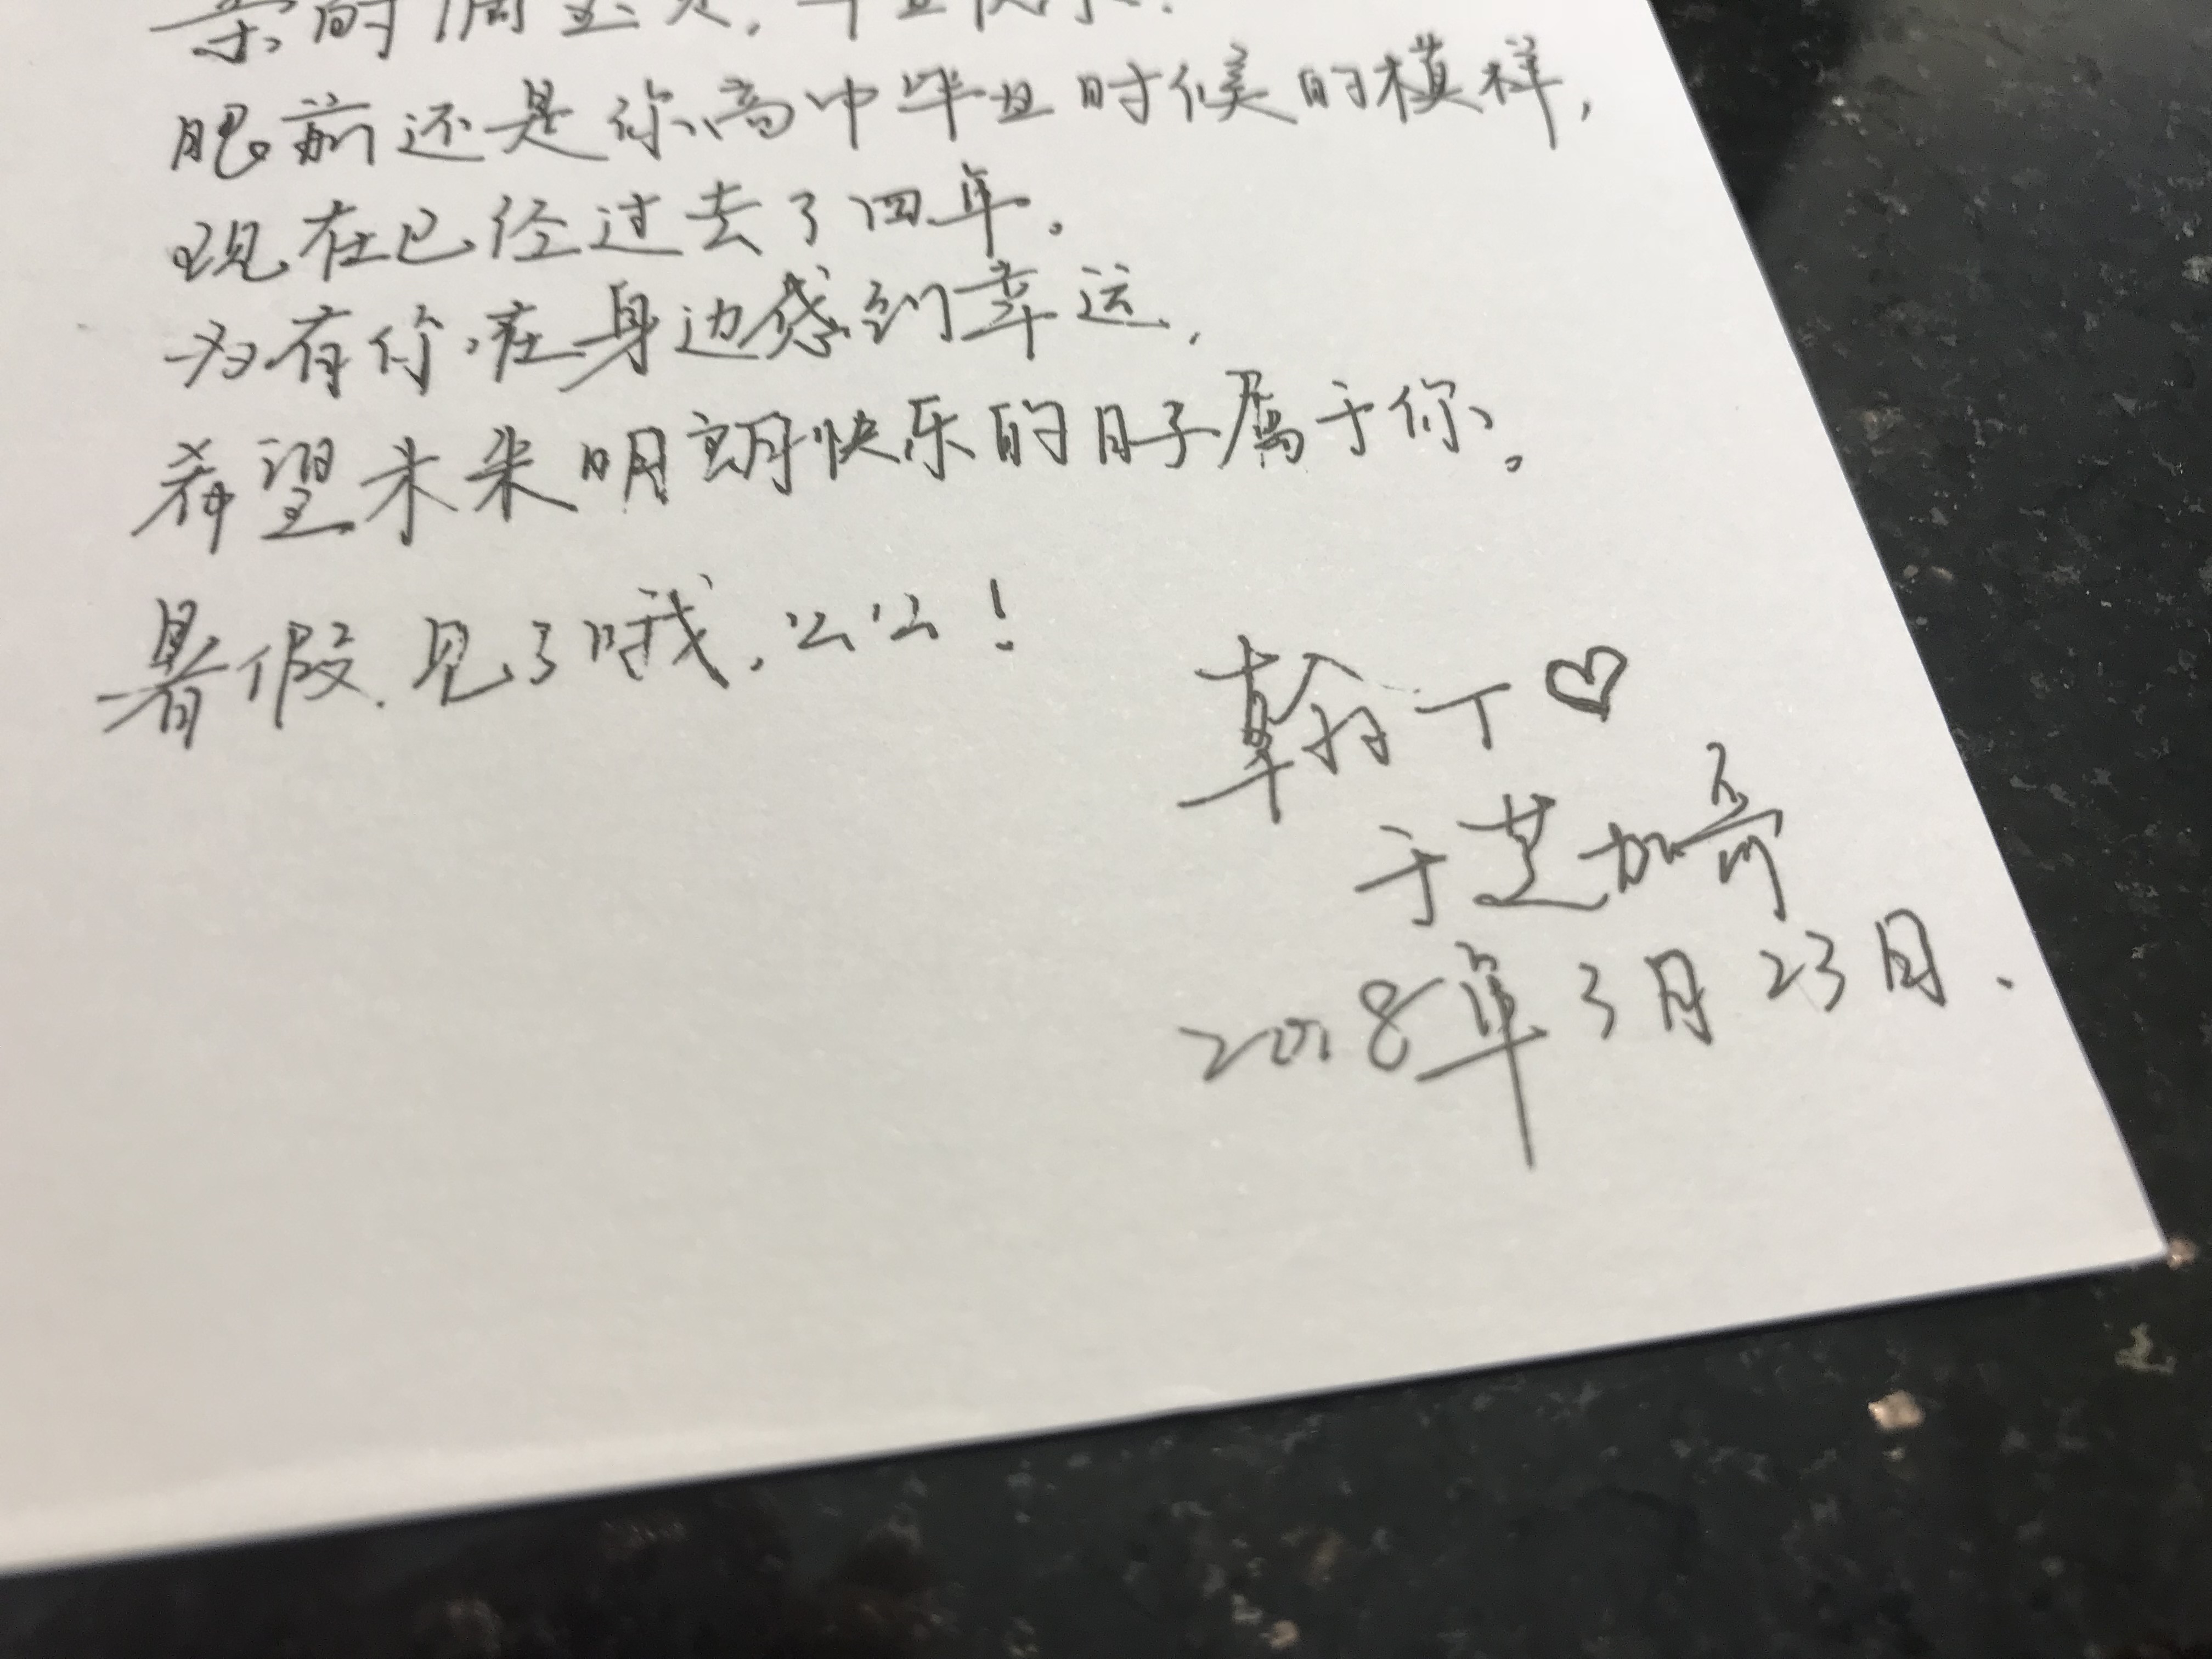 眼前还是你高中毕业时候的模样,
现在已经过去了四年。
为有你在身边感到幸运,
希望未来明朗快乐的日子属于你。
暑假见了哦,么么!
翰丁♡
于芝加哥
2018年3月23日.